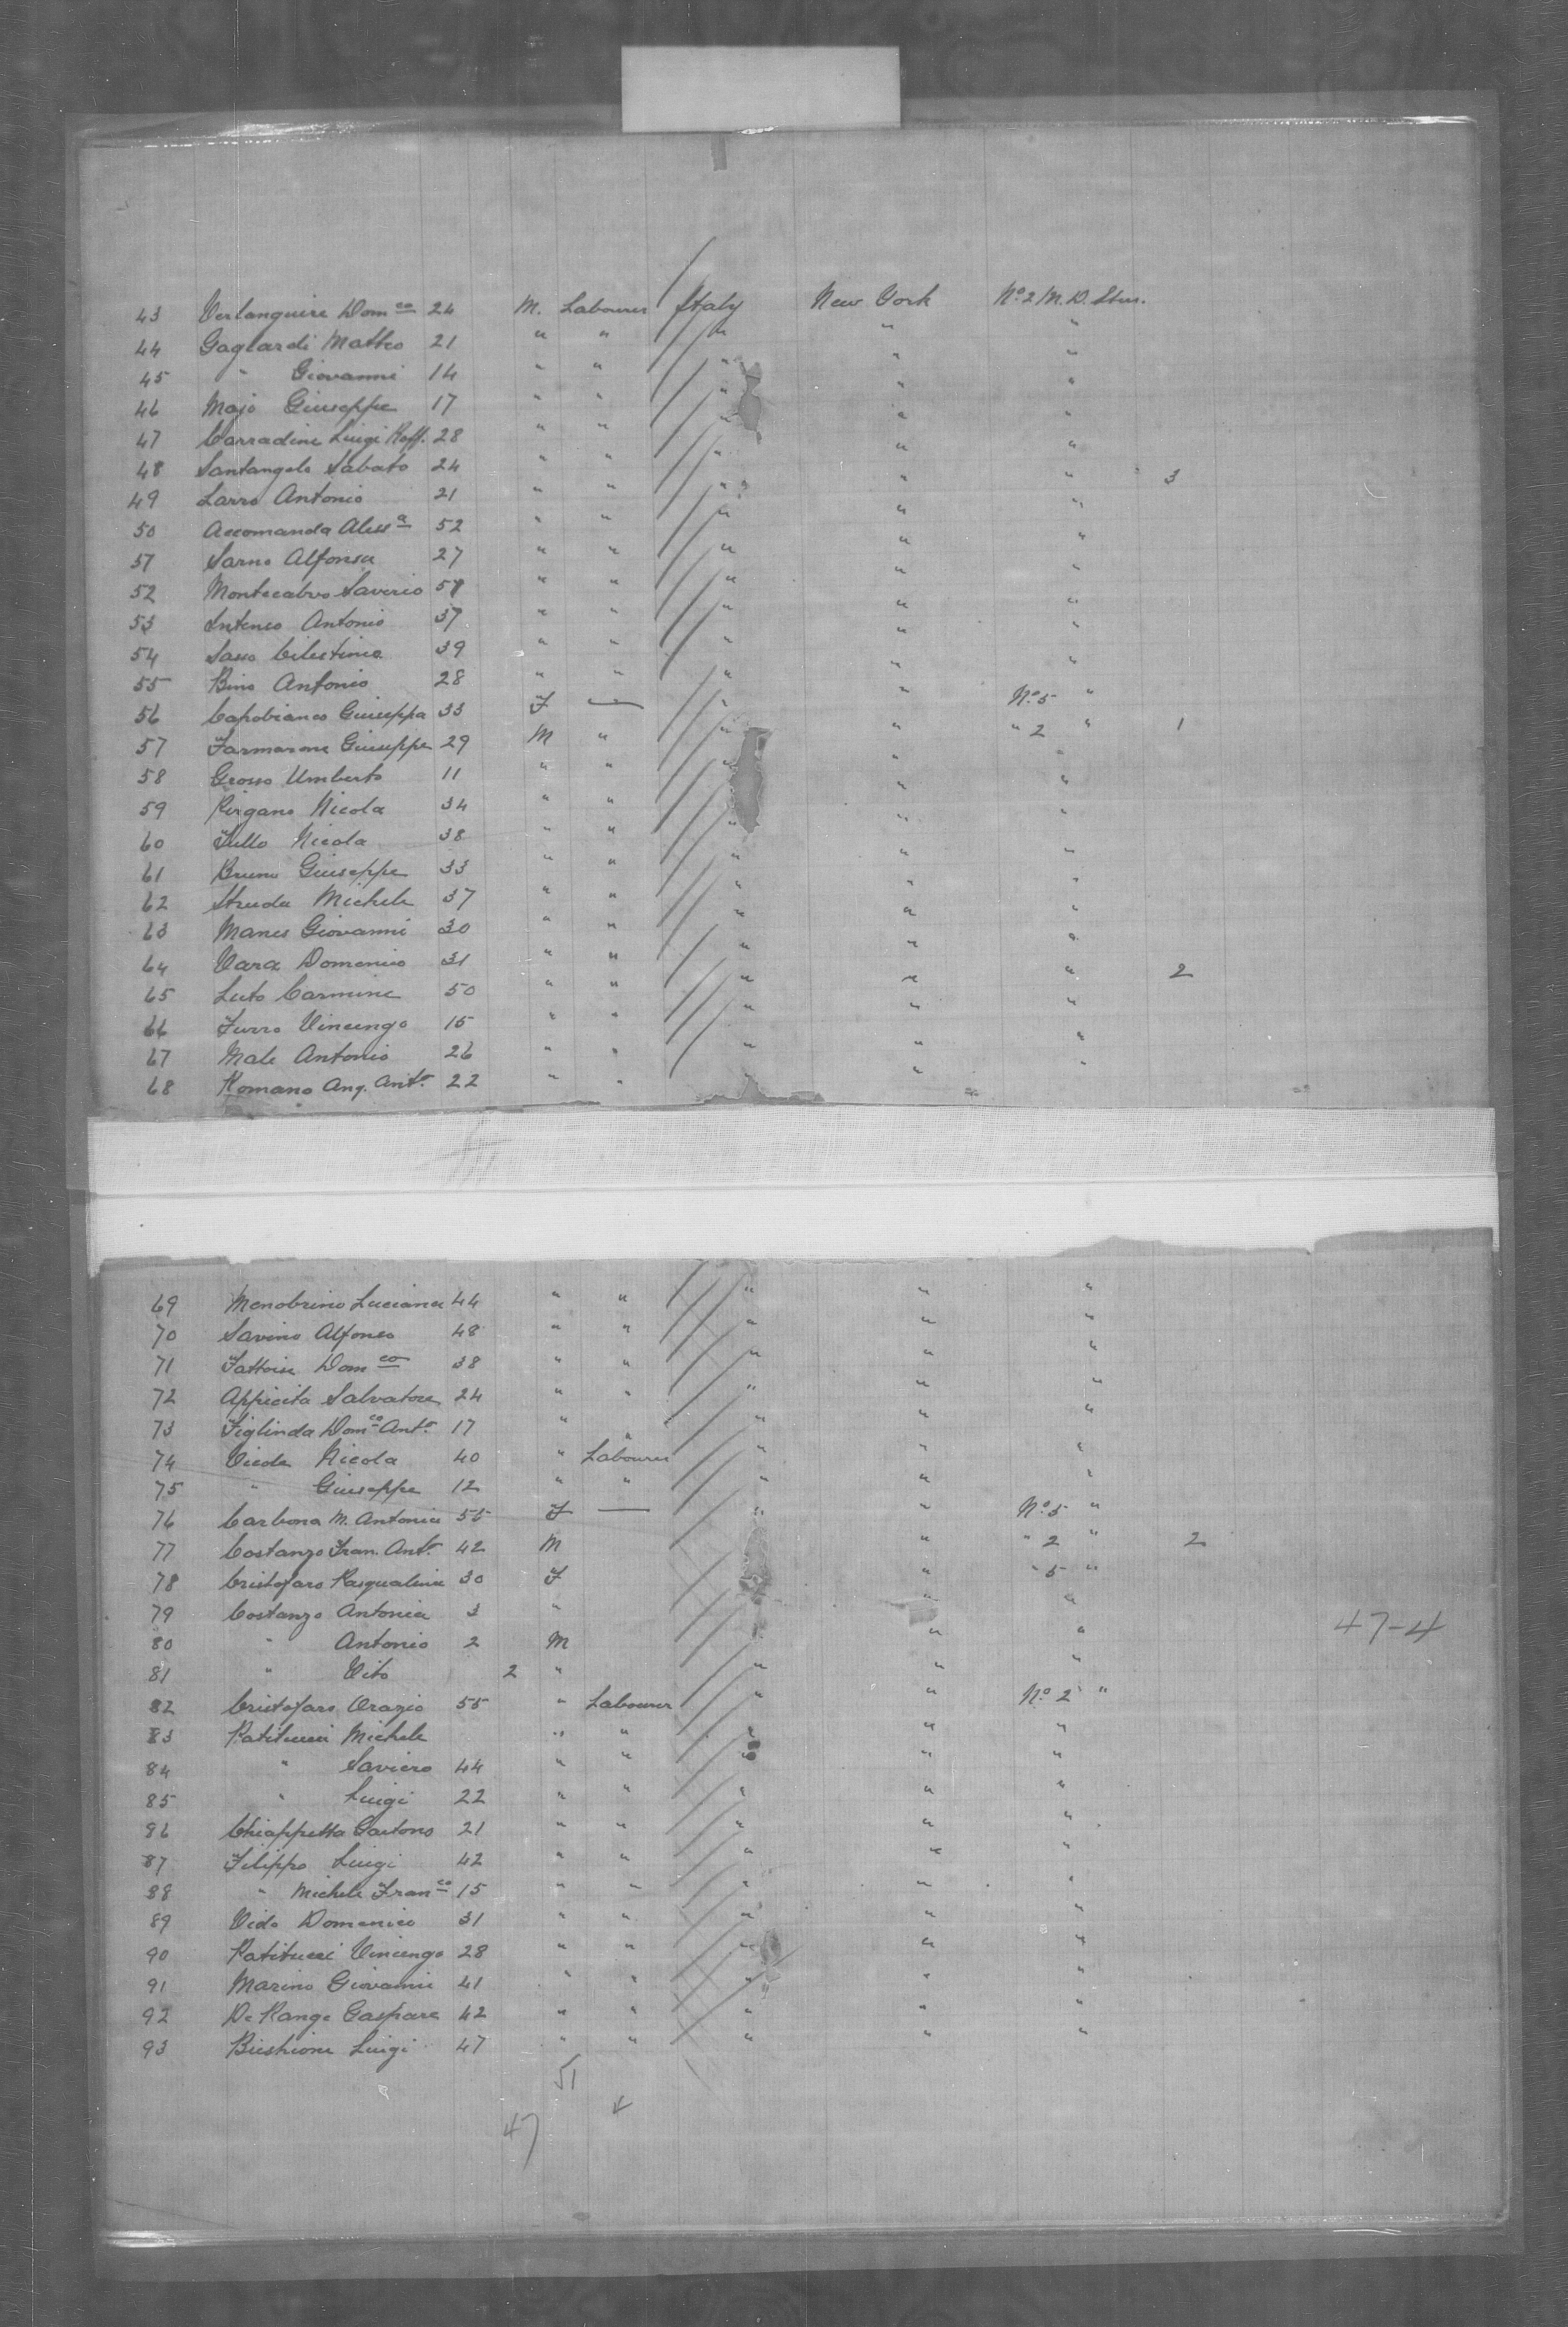 43 Verlangieri Dom co 24 M. Labourer Italy New York No 2 M. D. Strs.
44 Gagliardi Matteo 21 " " " " "
45 " Giovanni 14 " " " " "
46 Majo Giuseppe 17 " " " " "
47 Carradini Luigi Raff. 28 " " " " "
48 Santangelo Sabato 24 " " " " " 3
49 Larro Antonio 21 " " " " "
50 Accomanda Aless a 52 " " " " "
51 Sarno Alfonso 27 " " " " "
52 Montecalvo Saverio 51 " " " " "
53 Antonio 37 " " " " "
54 Sasso Celestino 39 " " " " "
55 Bino Antonio 28 " " " " "
56 Capobianco Giuseppa 33 F — " " No 5 "
57 Farmarone Giuseppe 29 M " " " " 2 " 1
58 Grosso Umberto 11 " " " " "
59 Nicola 34 " " " " "
60 Tullo Nicola 38 " " " " "
61 Bruno Giuseppe 33 " " " " "
62 Struda Michele 37 " " " " "
63 Manes Giovanni 30 " " " " "
64 Vara Domenico 31 " " " " " 2
65 Leto Carmine 50 " " " " "
66 Furro Vincenzo 15 " " " " "
67 Male Antonio 26 " " " " "
68 Romano Ang. Anto. 22 " " " " "
69 Menobrino Luciano 44 " " " " "
70 Savino Alfonso 48 " " " " "
71 Fattori Dom co 38 " " " " "
72 Appicita Salvatore 24 " " " " "
73 Figlinda Dom co Anto. 17 " " " " "
74 Nicola 40 " Labourer " " "
75 " Giuseppe 12 " " " " "
76 Carbona M. Antonia 55 F — " " No 5 "
77 Costanzo Fran. Anto. 42 M " " 2 " 2
78 Cristofaro Pasqualina 30 F " " 5 "
79 Costanzo Antonia 3 " " "
80 " Antonio 2 M " "
81 " Vito 2 " " " "
82 Cristofaro Orazio 55 " Labourer " " No 2 "
83 Patitucci Michele " " " " "
84 " Saviero 44 " " " " "
85 " Luigi 22 " " " " "
86 Chiappetta Gaetano 21 " " " " "
87 Filippo Luigi 42 " " " " "
88 " Michele Fran co 15 " " " " "
89 Vido Domenico 31 " " " " "
90 Patitucci Vincenzo 28 " " " " "
91 Marino Giovanni 41 " " " " "
92 De Range Gaspare 42 " " " " "
93 Luigi 47 " " " " "
47-4
51
47